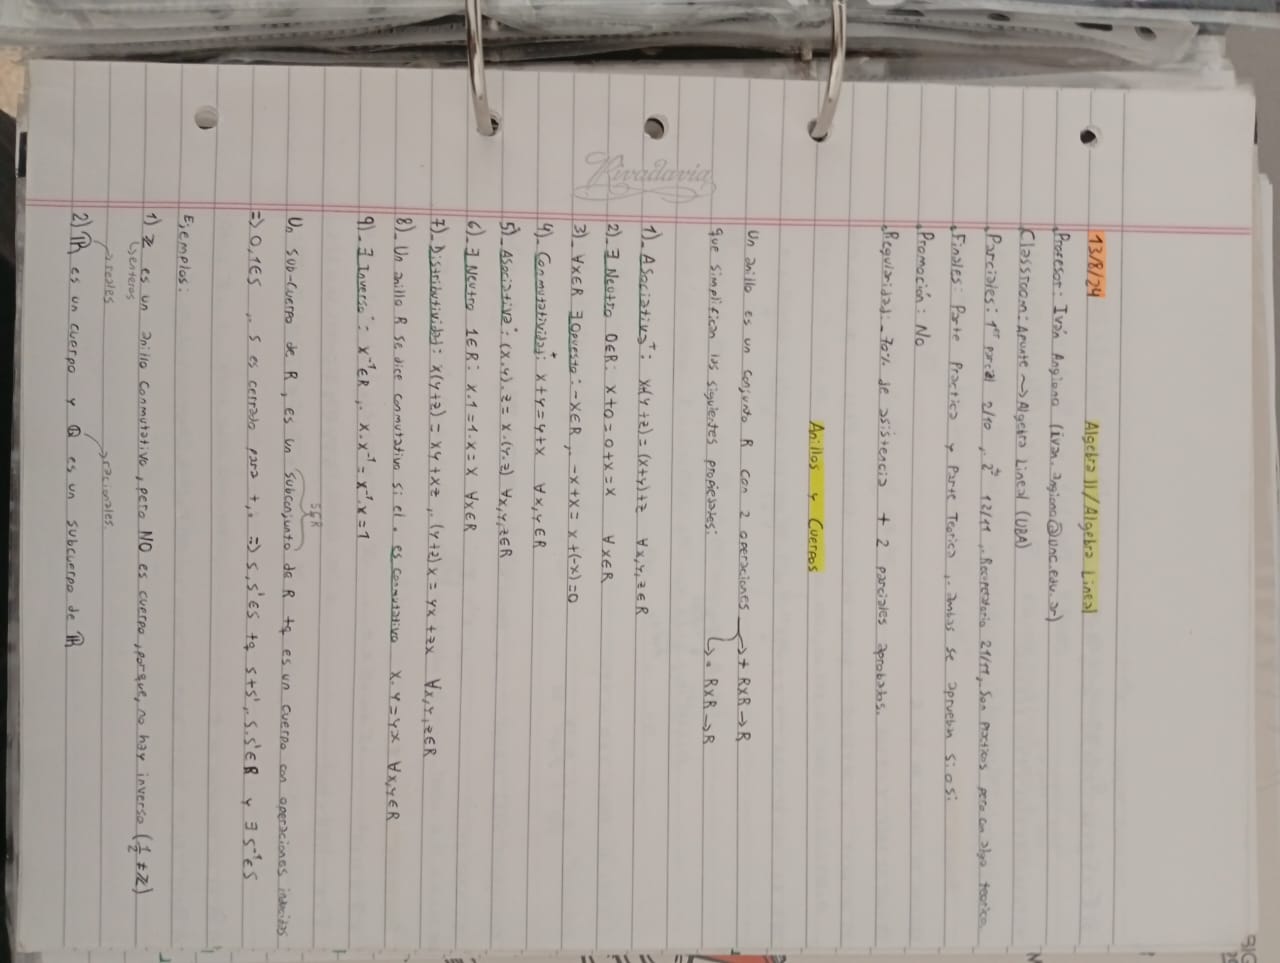 13/8/24 Algebra II/Algebra Lineal
Profesor: Iván Angiono (ivan.angiono@unc.edu.ar)
Classroom: Apunte ⇝ Algebra Lineal (UBA)
Parciales: 1er parcial 2/10 , 2do 12/11 , Recuperatorio 21/11, Son Practicos pero con algo teorico.
Finales: Parte Practica y Parte Teorica , ambas se aprueban si o si
Promoción: No
Regularidad: 70% de asistencia + 2 parciales aprobados.
Anillos y Cuerpos
Un anillo es un conjunto R con 2 operaciones → + RxR → R
que simplifican las siguientes propiedades: ↳ • RxR → R
1)_ Asociativa⁺: x+(y+z)=(x+y)+z ∀x,y,z∈R
2)_ ∃ Neutro 0∈R: x+0=0+x=x ∀x∈R
3)_ ∀x∈R ∃ Opuesto: -x∈R ,. -x+x= x+(-x)=0
4)_ Conmutatividad⁺: x+y=y+x ∀x,y∈R
5)_ Asociativa˙: (x.y).z = x.(y.z) ∀x,y,z∈R
6)_ ∃ Neutro 1∈R: x.1=1.x=x ∀x∈R
7)_ Distributividad: x(y+z) = xy+xz ,. (y+z)x = yx+zx ∀x,y,z∈R
8)_ Un anillo R se dice conmutativo si el . es conmutativo x.y=yx ∀x,y∈R
9)_ ∃ Inverso˙: x⁻¹∈R ,. x.x⁻¹=x⁻¹.x=1
S⊊R
Un sub-cuerpo de R, es un subconjunto de R tq es un cuerpo con operaciones inducidas
=> 0,1∈S ,. S es cerrado para +,. => s,s'∈S tq s+s',. s.s'∈R y ∃ s⁻¹∈S
Ejemplos:
1) ℤ es un anillo conmutativo, pero NO es cuerpo, porque, no hay inverso (1/2 ≠ ℤ)
↳ enteros
→ reales → racionales.
2) ℝ es un cuerpo y ℚ es un subcuerpo de ℝ
Rivadavia